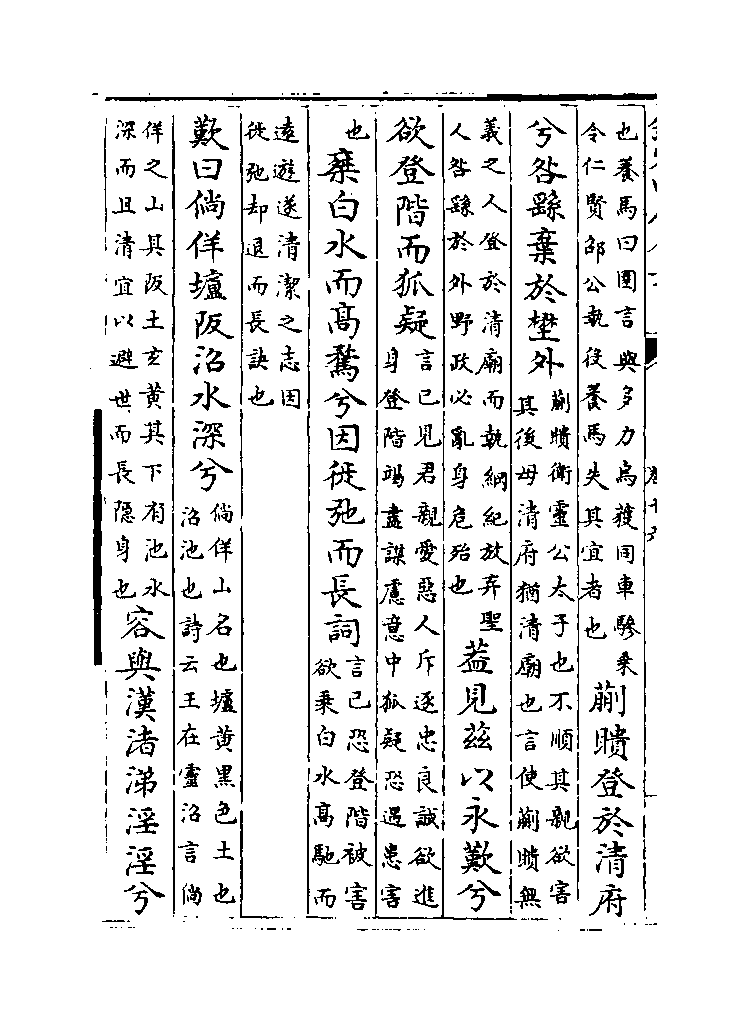 也養馬曰圉言與多力烏獲同車驂乘
令仁賢邵公執役養馬失其宜者也
蒯聵登於清府
兮咎繇棄於壄外
蒯聵衛靈公太子也不順其親欲害
其後母清府猶清廟也言使蒯聵無
義之人登於清廟而執綱紀放弃聖
人咎繇於外野政必亂身危殆也
葢見茲以永歎兮
欲登階而狐疑
言己見君親愛惡人斥逐忠良誠欲進
身登階竭盡謀慮意中狐疑恐遇患害
也
椉白水而高騖兮因徙弛而長詞
言己恐登階被害
欲乗白水高馳而
遠遊遂清潔之志因
徙弛却退而長訣也
歎曰倘佯壚阪沼水深兮
倘佯山名也壚黄黑色土也
沼池也詩云王在靈沼言倘
佯之山其阪土玄黄其下有池水
深而且清宜以避世而長隠身也
容與漢渚涕淫淫兮